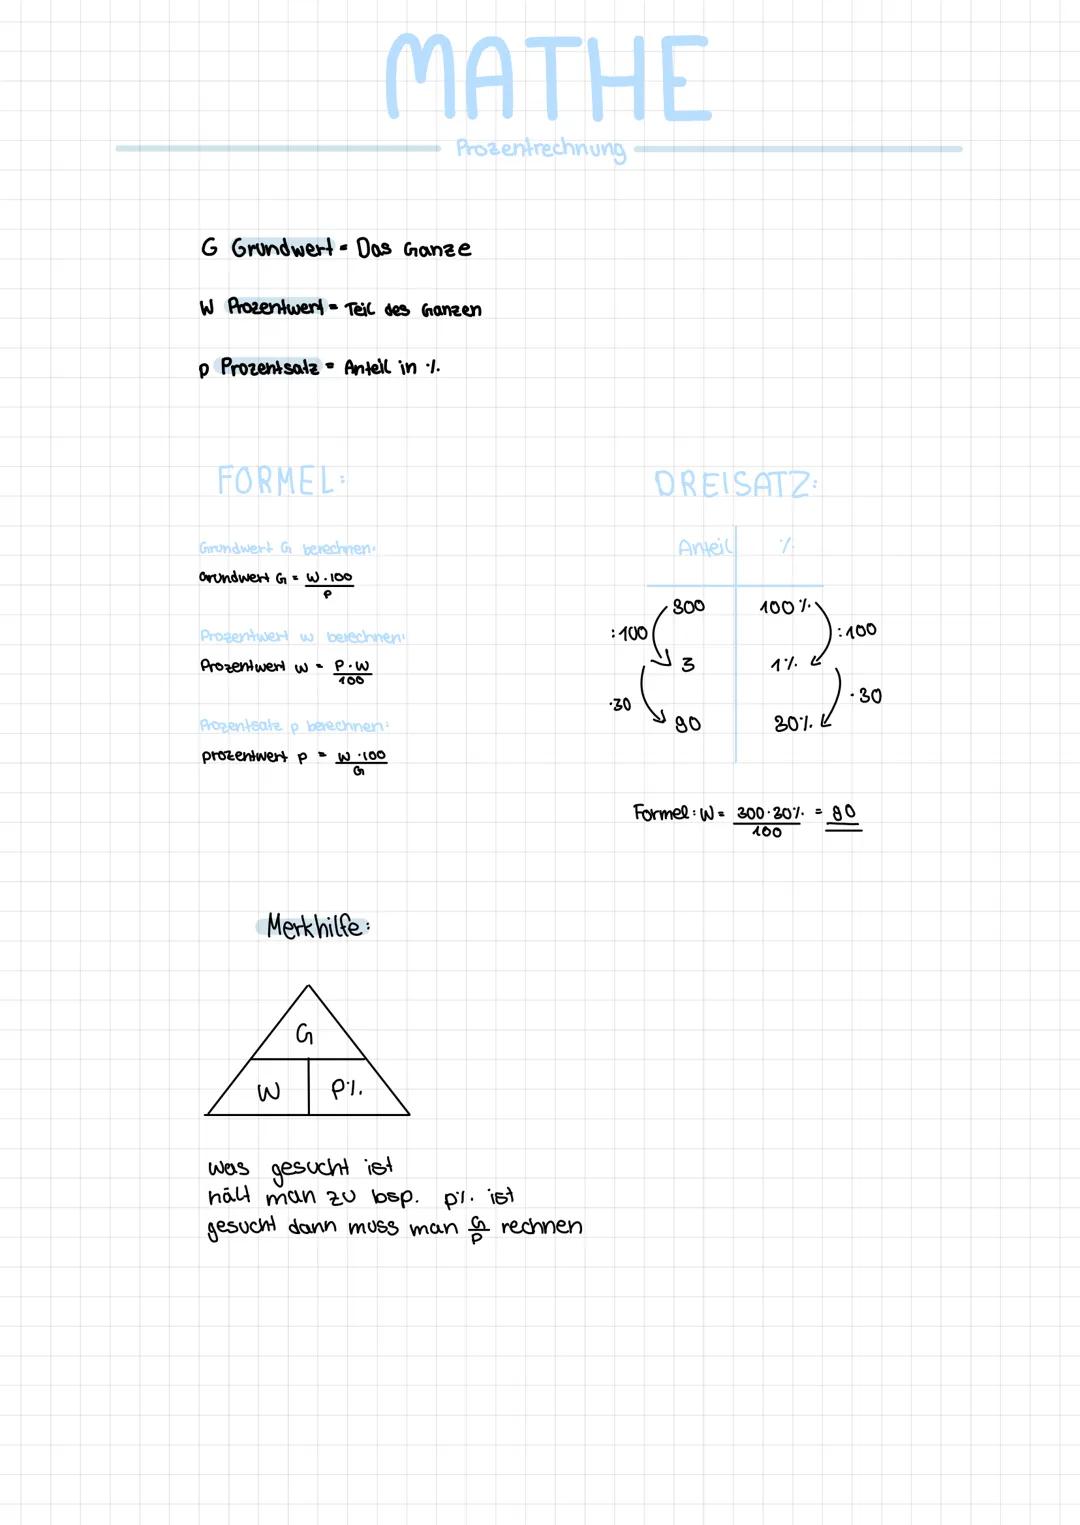 MATHE
Prozentrechnung
G Grundwert = Das Ganze
W Prozentwert = Teil des Ganzen
p Prozentsatz = Anteil in %
FORMEL:
Grundwert G berechnen:
Grundwert G = W · 100 / P
Prozentwert w berechnen:
Prozentwert w = P · W / 100
Prozentsatz p berechnen:
prozentwert p = W · 100 / G
DREISATZ:
Anteil %
300 100%
:100 :100
3 1%
·30 ·30
90 30%
Formel: W = 300 · 30% / 100 = 90
Merkhilfe:
G
W P%
was gesucht ist
hält man zu bsp. p% ist
gesucht dann muss man G/P rechnen